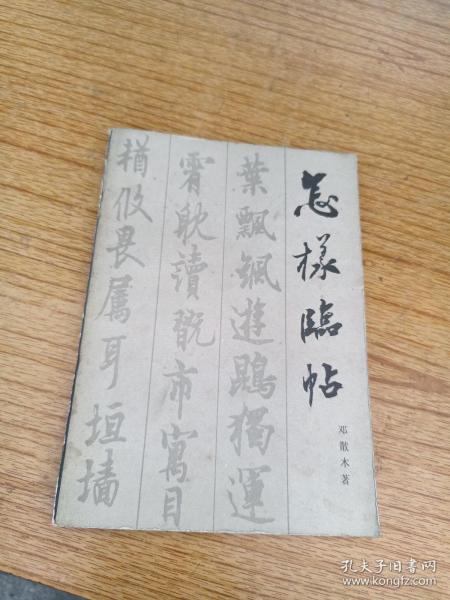 怎樣臨帖
邓散木著
葉飄颻遊鵾獨運
霄耽讀翫市寓目
攸畏属耳垣墙
孔夫子旧书网
www.kongfz.com